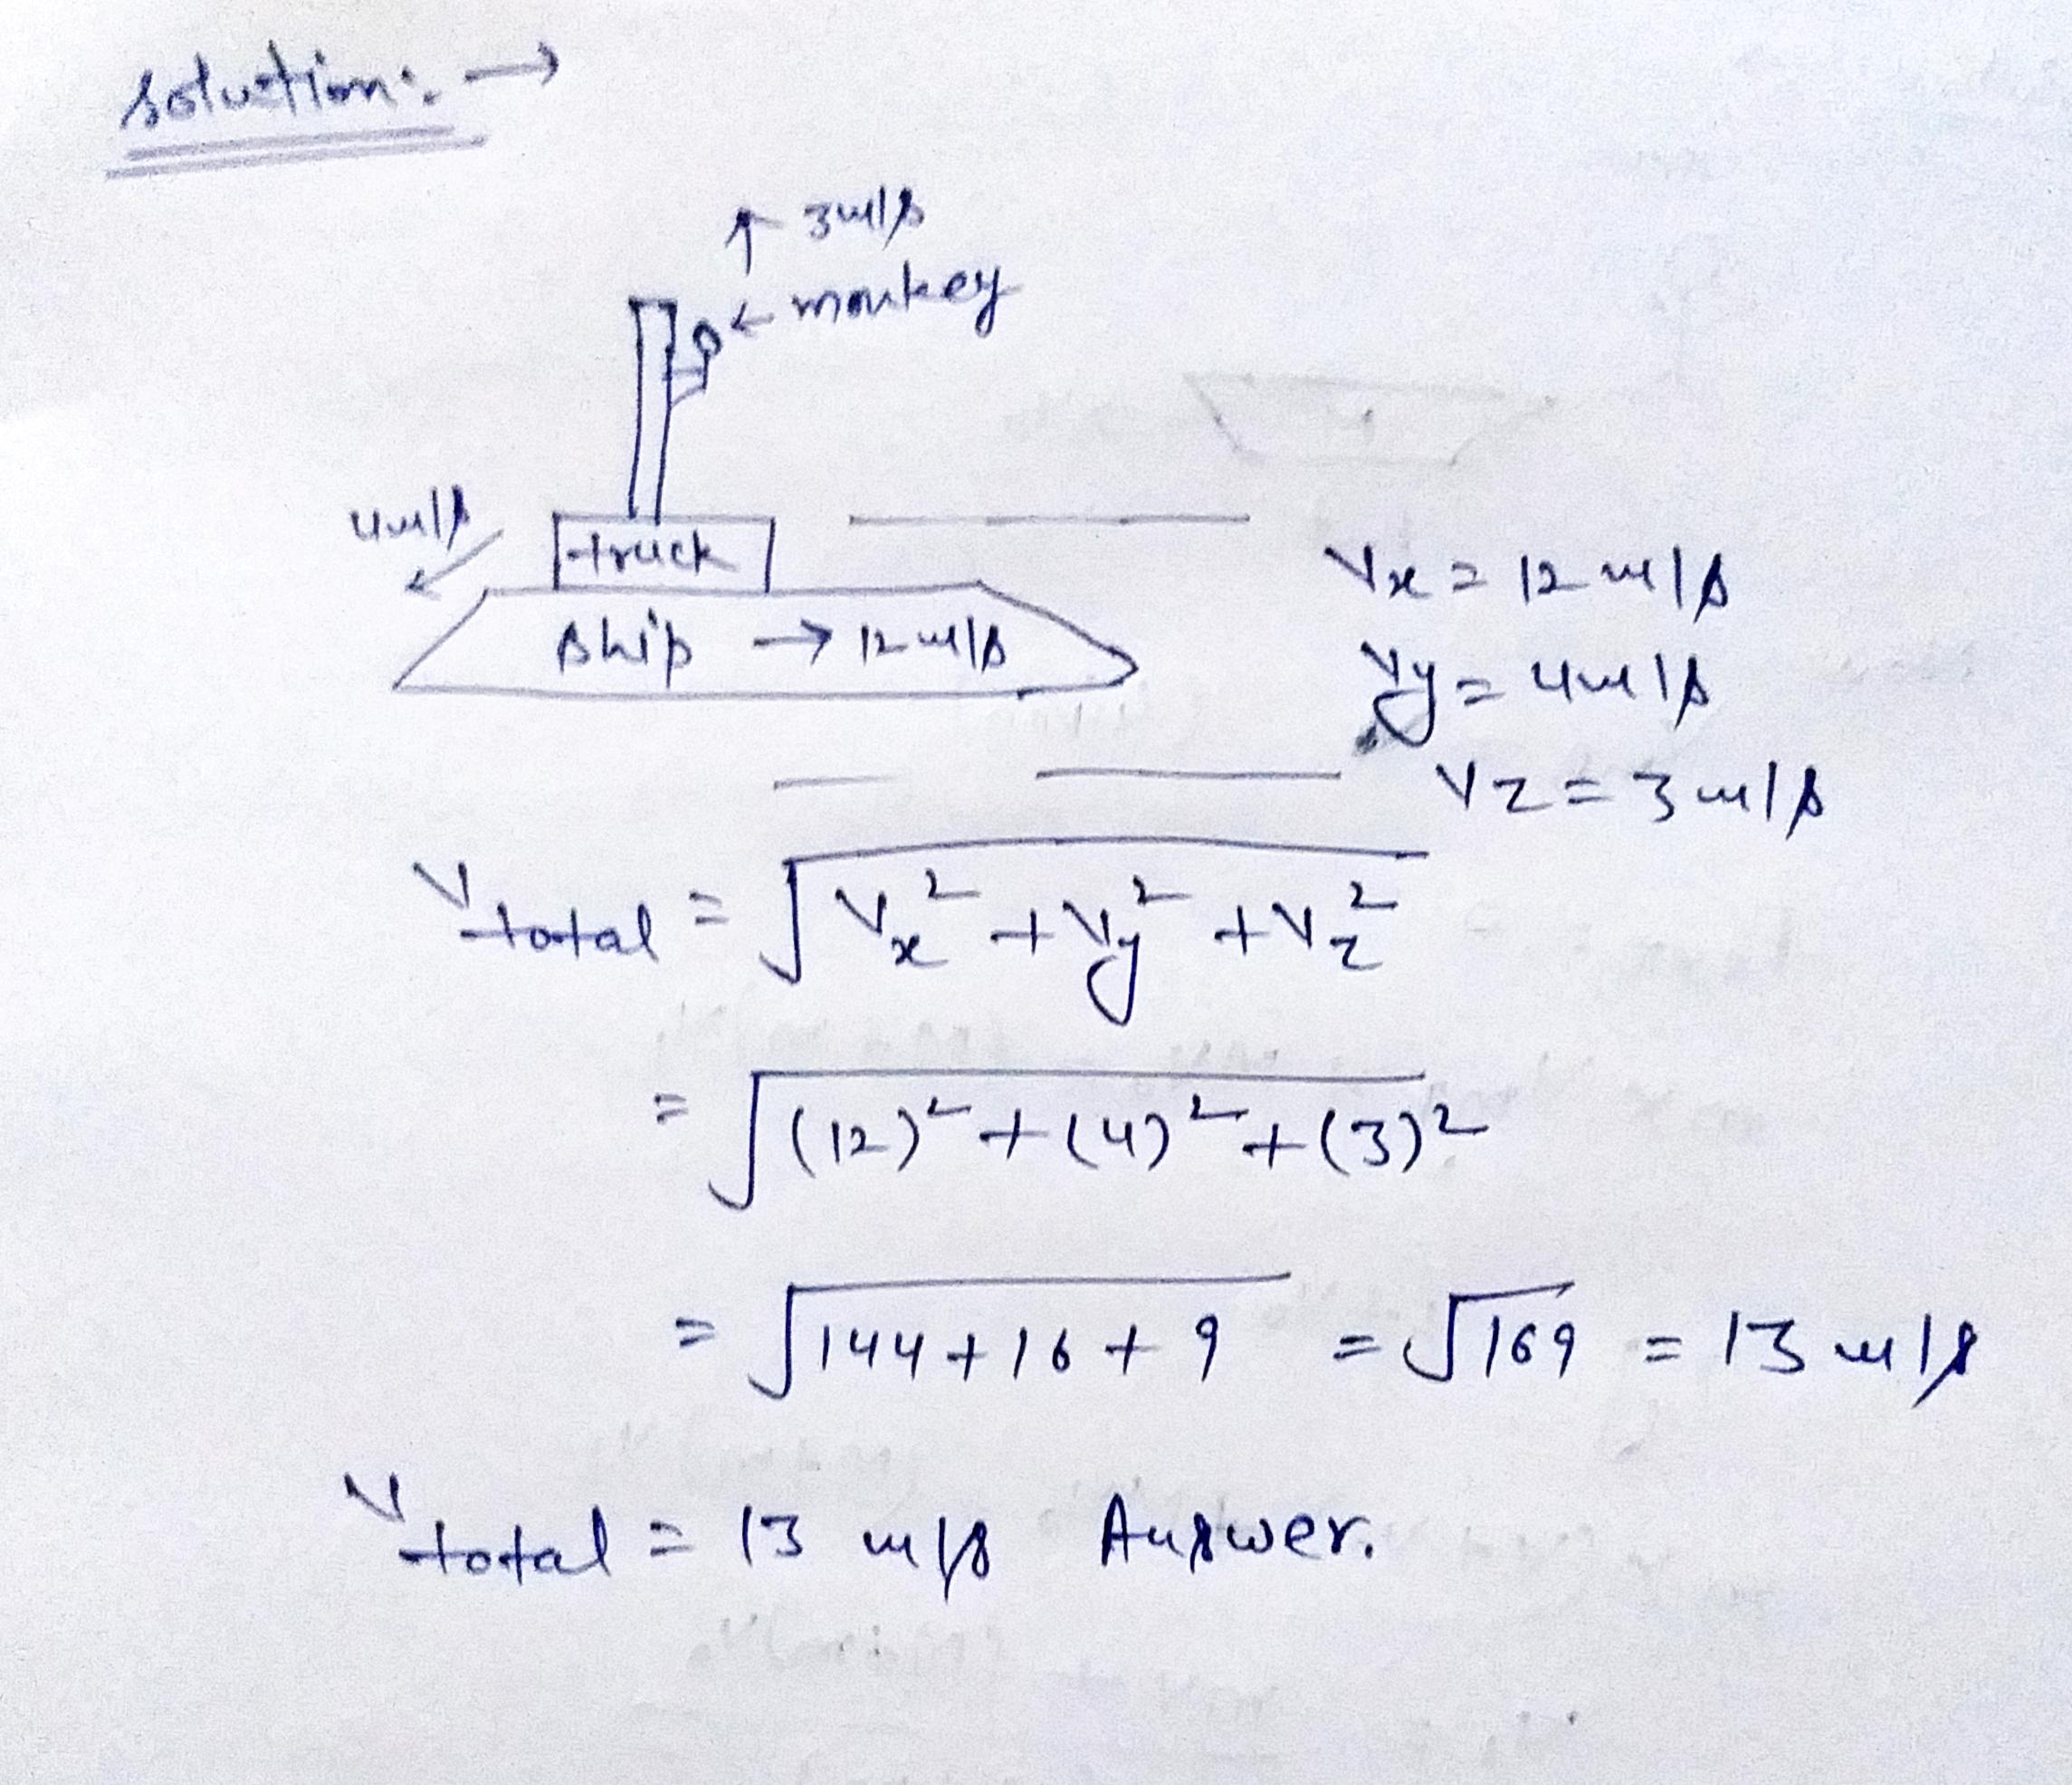 solution:. →
↑ 3m/s
← monkey
4m/s
truck
ship → 12m/s
Vx = 12 m/s
Vy = 4m/s
Vz = 3m/s
Vtotal = √(Vx² + Vy² + Vz²)
= √((12)² + (4)² + (3)²)
= √(144 + 16 + 9) = √169 = 13 m/s
Vtotal = 13 m/s Answer.